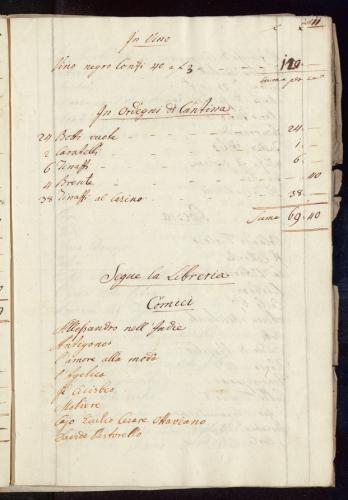 In Vino
Vino negro Conzi 40 a £3 120
Summa per se
In Ordegni di Cantina
24 Botti vuote 24
2 Caratelli 1
6 Tinassi 6
4 Brente 40
38 Tinassi al 38
Suma 69.40
Segue la Libreria
Comici
Allessandro nell'Indie
Antigono
L'amore alla moda
L'Angelica
Il Cicisbeo
Moliere
Cajo Giulio Cesare Ottaviano
Davide Pastorello